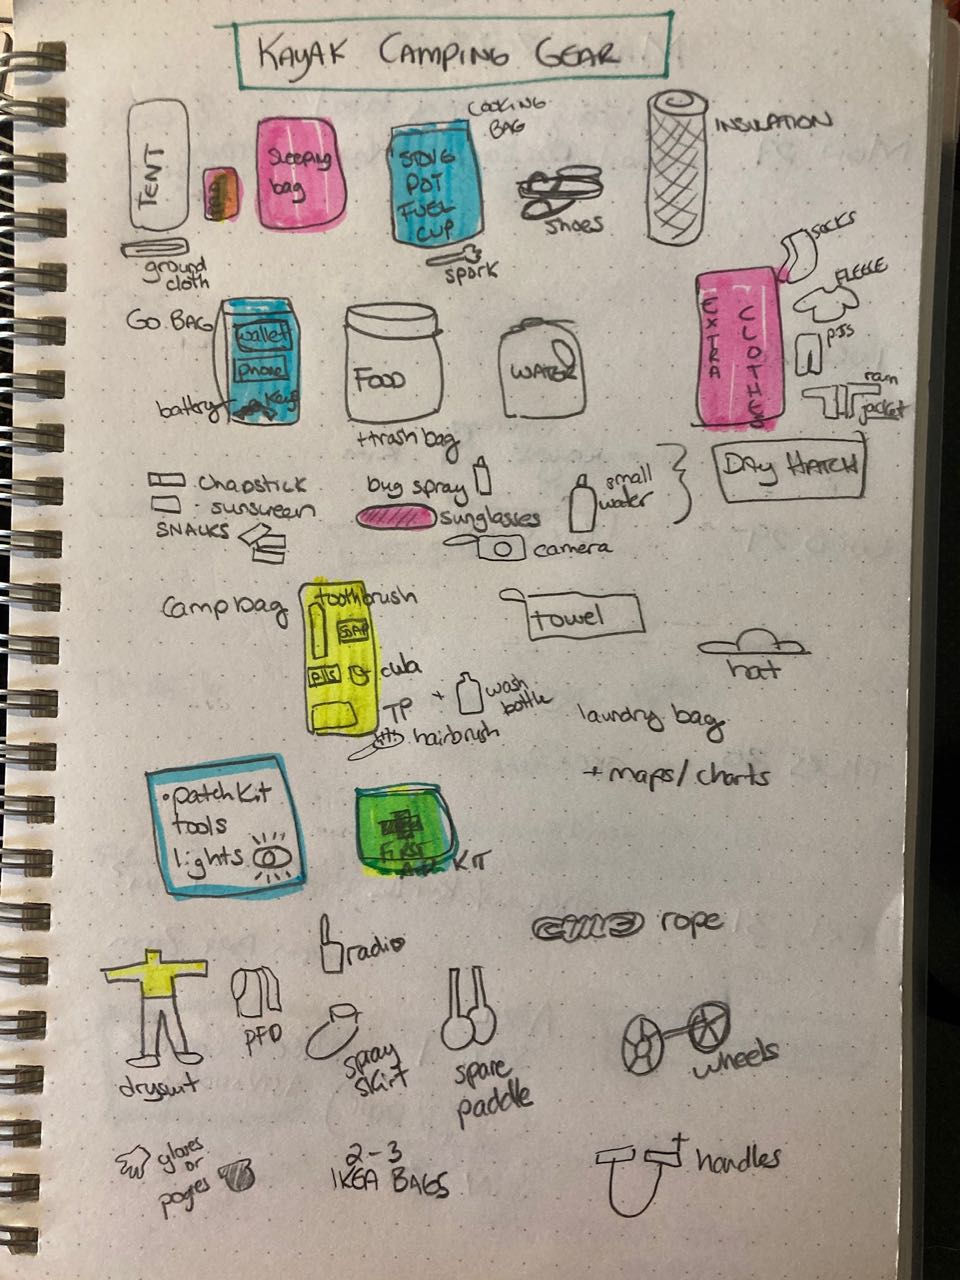 KAYAK CAMPING GEAR
TENT
ground
cloth
Sleeping
bag
COOKING
BAG
STOVE
POT
FUEL
CUP
spork
shoes
INSULATION
GO BAG
wallet
phone
keys
battery
FOOD
+ trash bag
WATER
EXTRA
CLOTHES
SOCKS
FLEECE
PJS
rain
jacket
chapstick
sunscreen
SNACKS
bug spray
sunglasses
camera
small
water
DAY HATCH
Camp bag
toothbrush
SOAP
pills
TP
hairbrush
+ wash
bottle
towel
hat
laundry bag
+ maps/charts
• patch kit
tools
lights
FIRST
AID KIT
radio
rope
drysuit
PFD
spray
skirt
spare
paddle
wheels
gloves
or
pogies
2-3
IKEA BAGS
handles